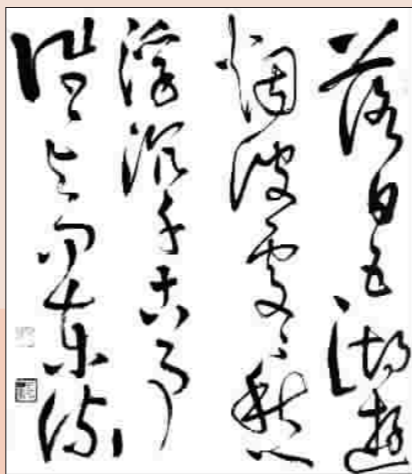 落日五湖遊
烟波處々愁
浮沉千古事
誰与问東流